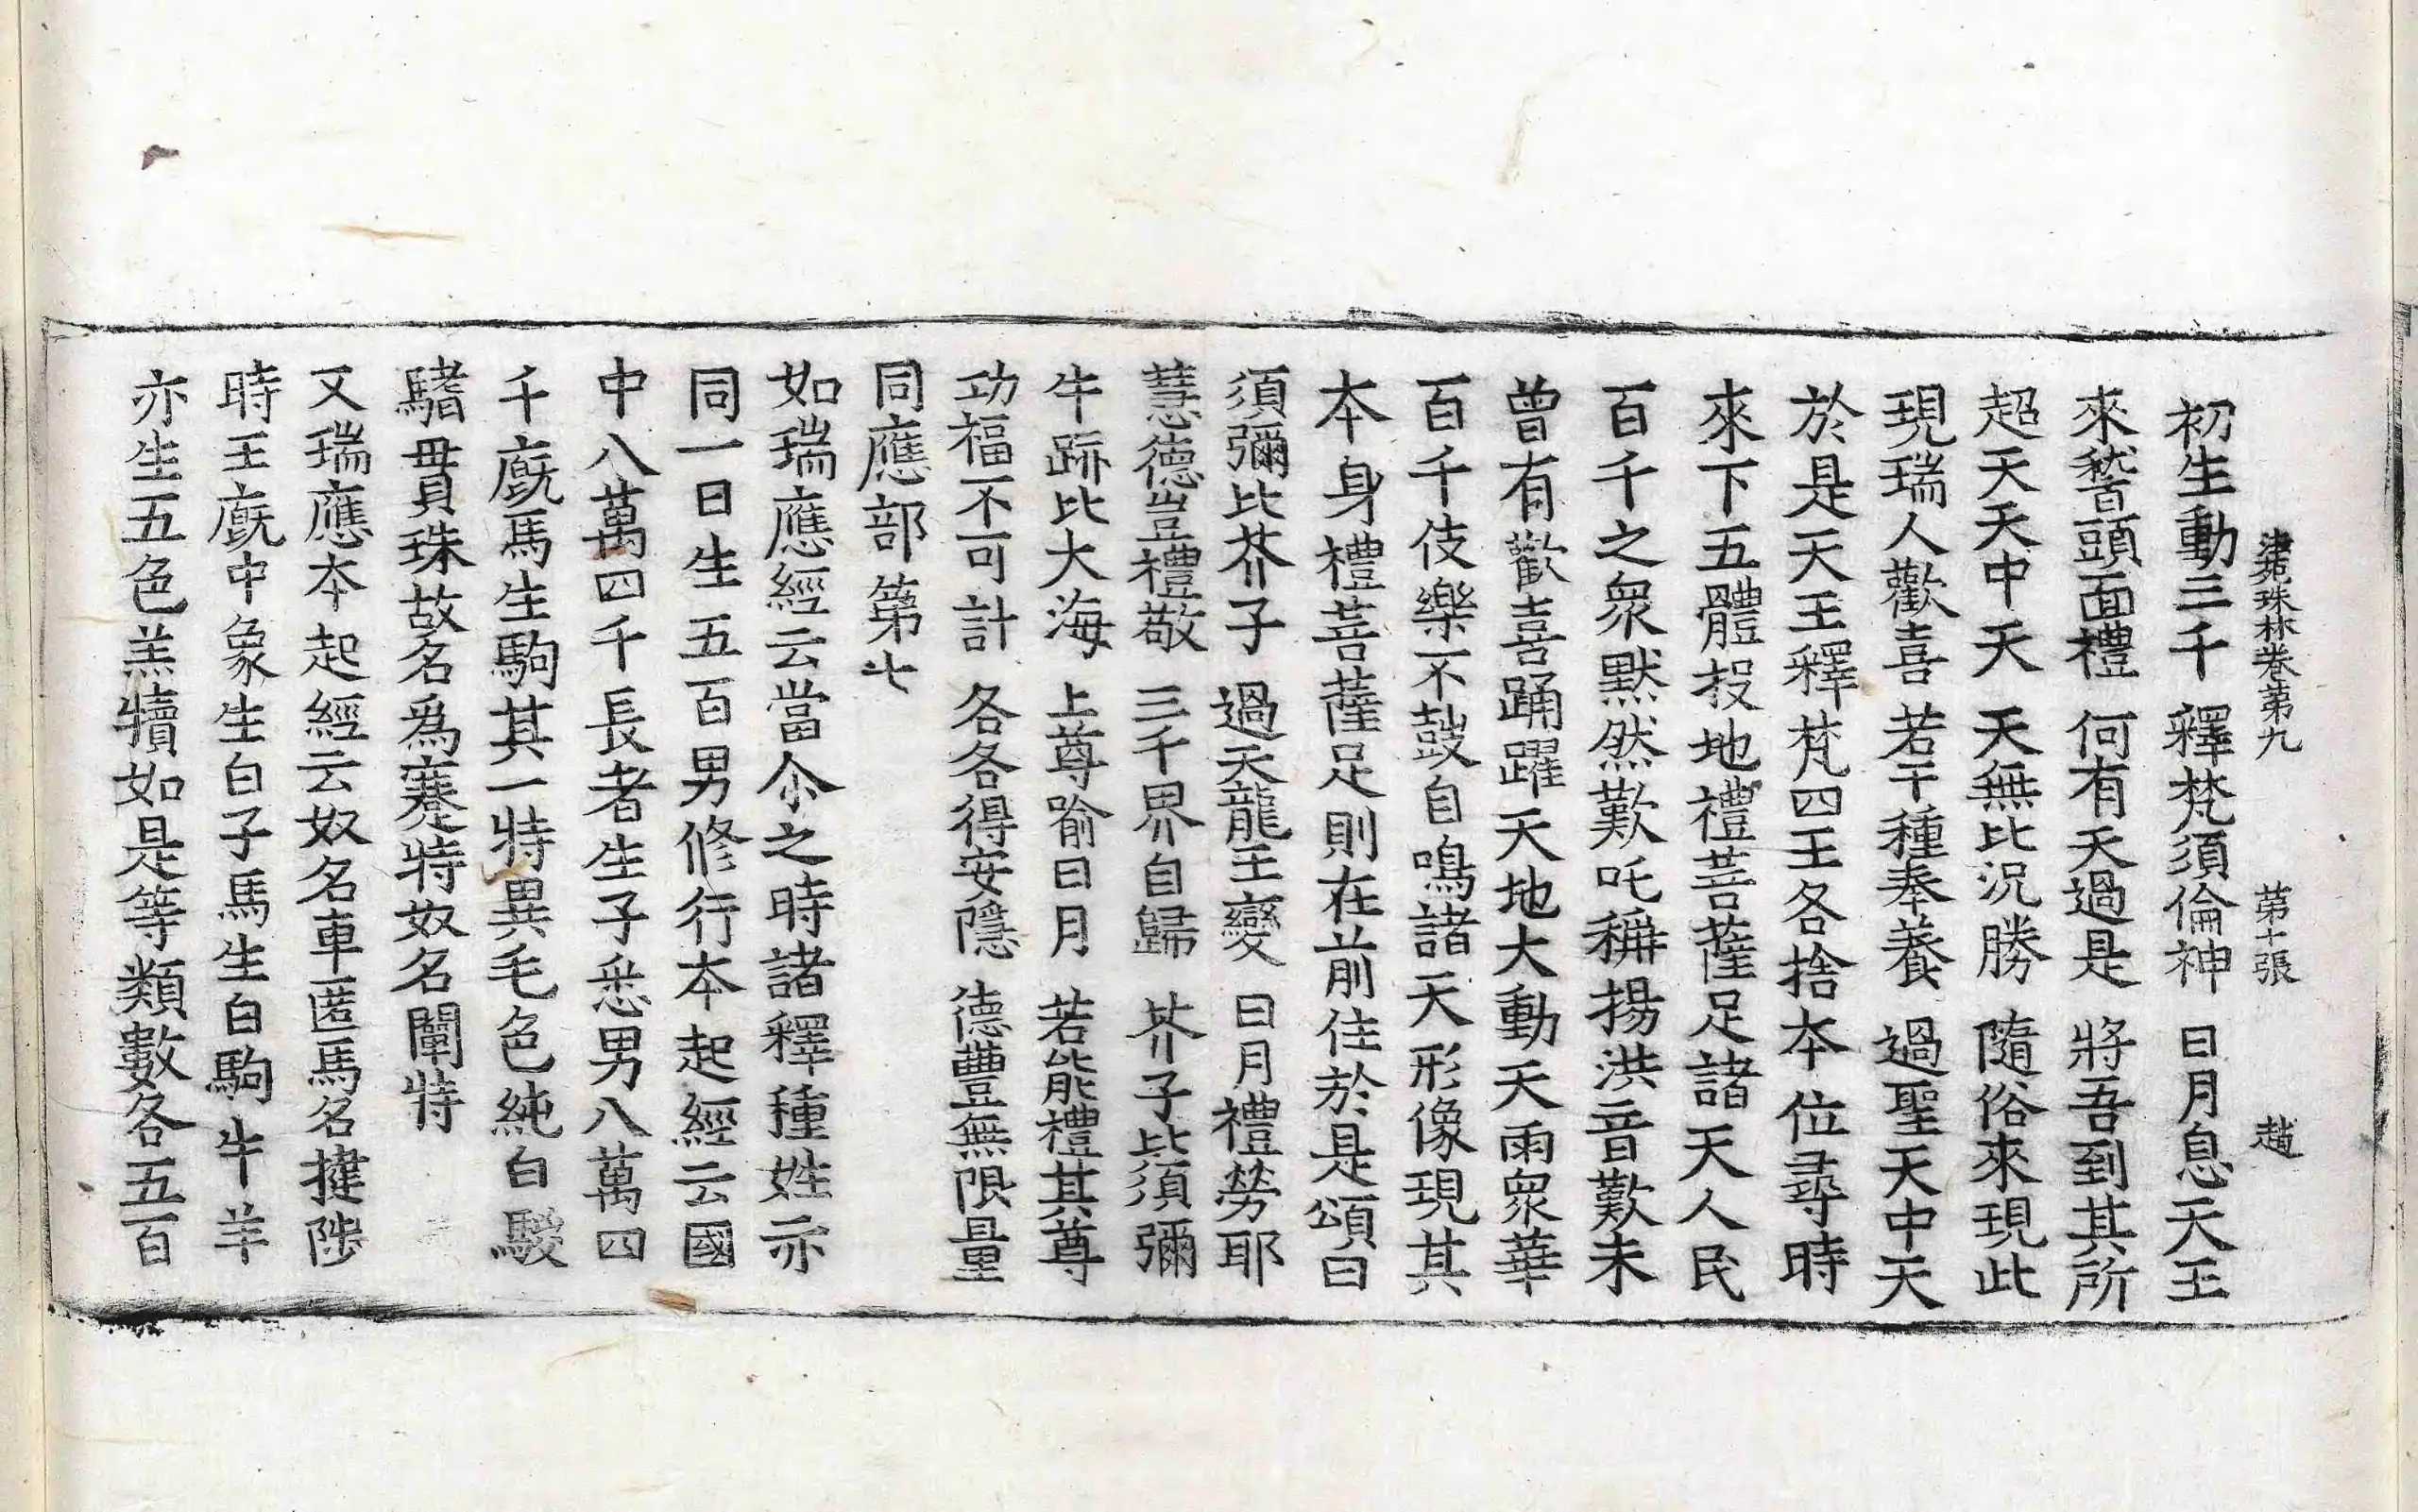 法苑珠林卷第九 第十張 趙
初生動三千 釋梵須倫神 日月息天王
來䅲首頭面禮 何有天過是 將吾到其所
超天天中天 天無比況勝 隨俗來現此
現瑞人歡喜 若干種奉養 過聖天中天
於是天王釋梵四王各捨本位尋時
來下五體投地禮菩薩足諸天人民
百千之衆默然歎吒稱揚洪音歎未
曾有歡喜踊躍天地大動天雨衆華
百千伎樂不鼓自鳴諸天形像現其
本身禮菩薩足則在前住於是頌曰
須彌比芥子 過天龍王變 日月禮勞耶
慧德豈禮敬 三千界自歸 芥子比須彌
牛跡比大海 上尊喻日月 若能禮其尊
功福不可計 各各得安隱 德豐無限量
同應部第七
如瑞應經云當尒之時諸釋種姓亦
同一日生五百男修行本起經云國
中八萬四千長者生子悉男八萬四
千廐馬生駒其一特異毛色純白駿
䭱貫珠故名爲騫特奴名闡特
又瑞應本起經云奴名車匿馬名揵陟
時王廐中象生白子馬生白駒牛羊
亦生五色羔犢如是等類數各五百